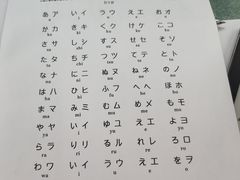 あア いイ うウ えエ おオ
a i u e o
かカ きキ くク けケ こコ
ka ki ku ke ko
さサ しシ すス せセ そソ
sa si su se so
たタ ちチ つツ てテ とト
ta ti tu te to
なナ にニ ぬヌ ねネ のノ
na ni nu ne no
はハ ひヒ ふフ へヘ ほホ
ha hi fu he ho
まマ みミ むム めメ もモ
ma mi mu me mo
やヤ いイ ゆユ えエ よヨ
ya i yu e yo
らラ りリ るル れレ ろロ
ra ri ru re ro
わワ いイ うウ えエ をヲ
wa i u e o